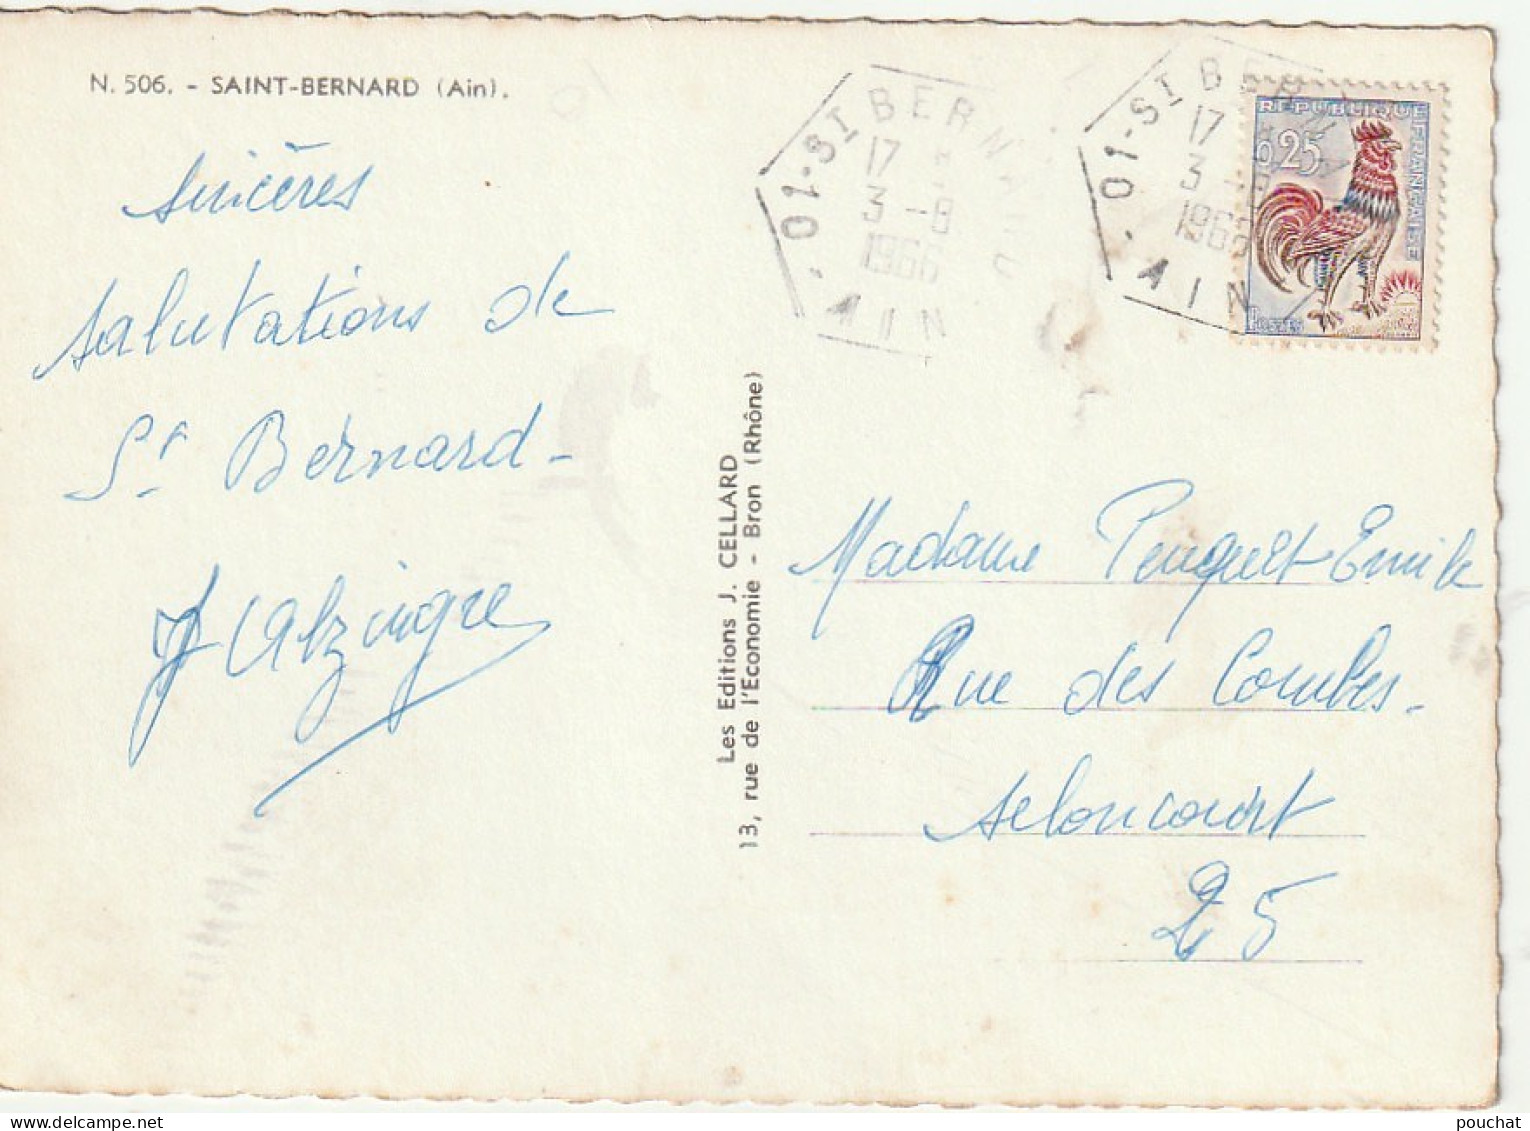 N. 506. - SAINT-BERNARD (Ain).
Sincères
salutations de
St Bernard -
Les Editions J. CELLARD
13, rue de l'Economie - Bron (Rhône)
01-ST BERNARD
17
3 -8
1966
AIN
01-ST BER
17
3 -
196
AIN
REPUBLIQUE FRANÇAISE
0,25
POSTES
Madame Peuquet-Emile
Rue des Combes.
Seloncourt
25
pouchat